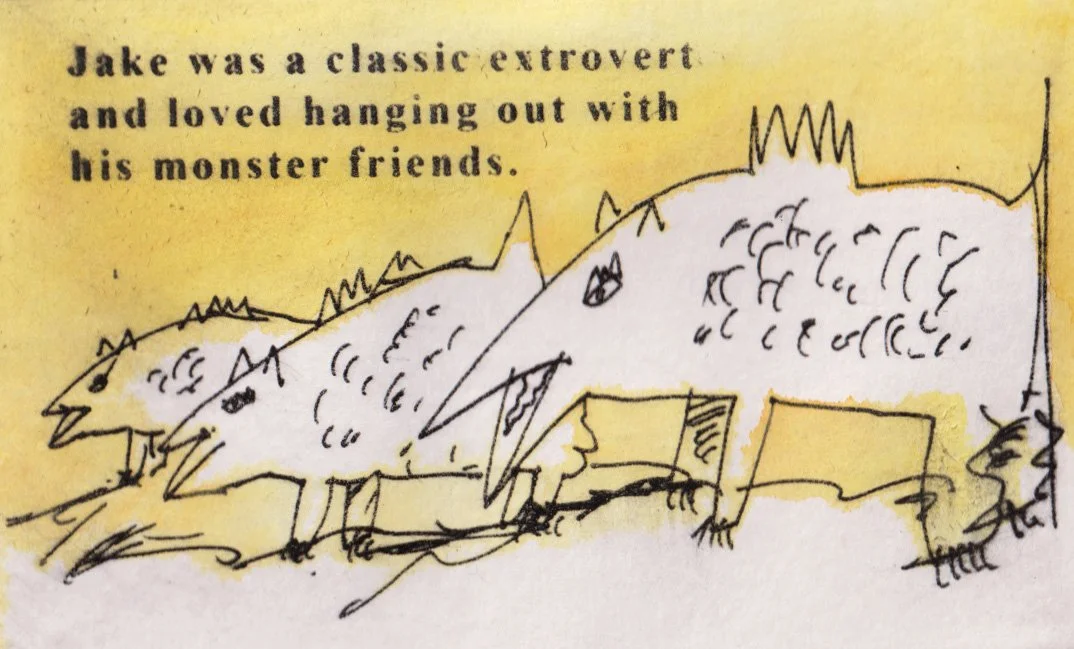 Jake was a classic extrovert
and loved hanging out with
his monster friends.